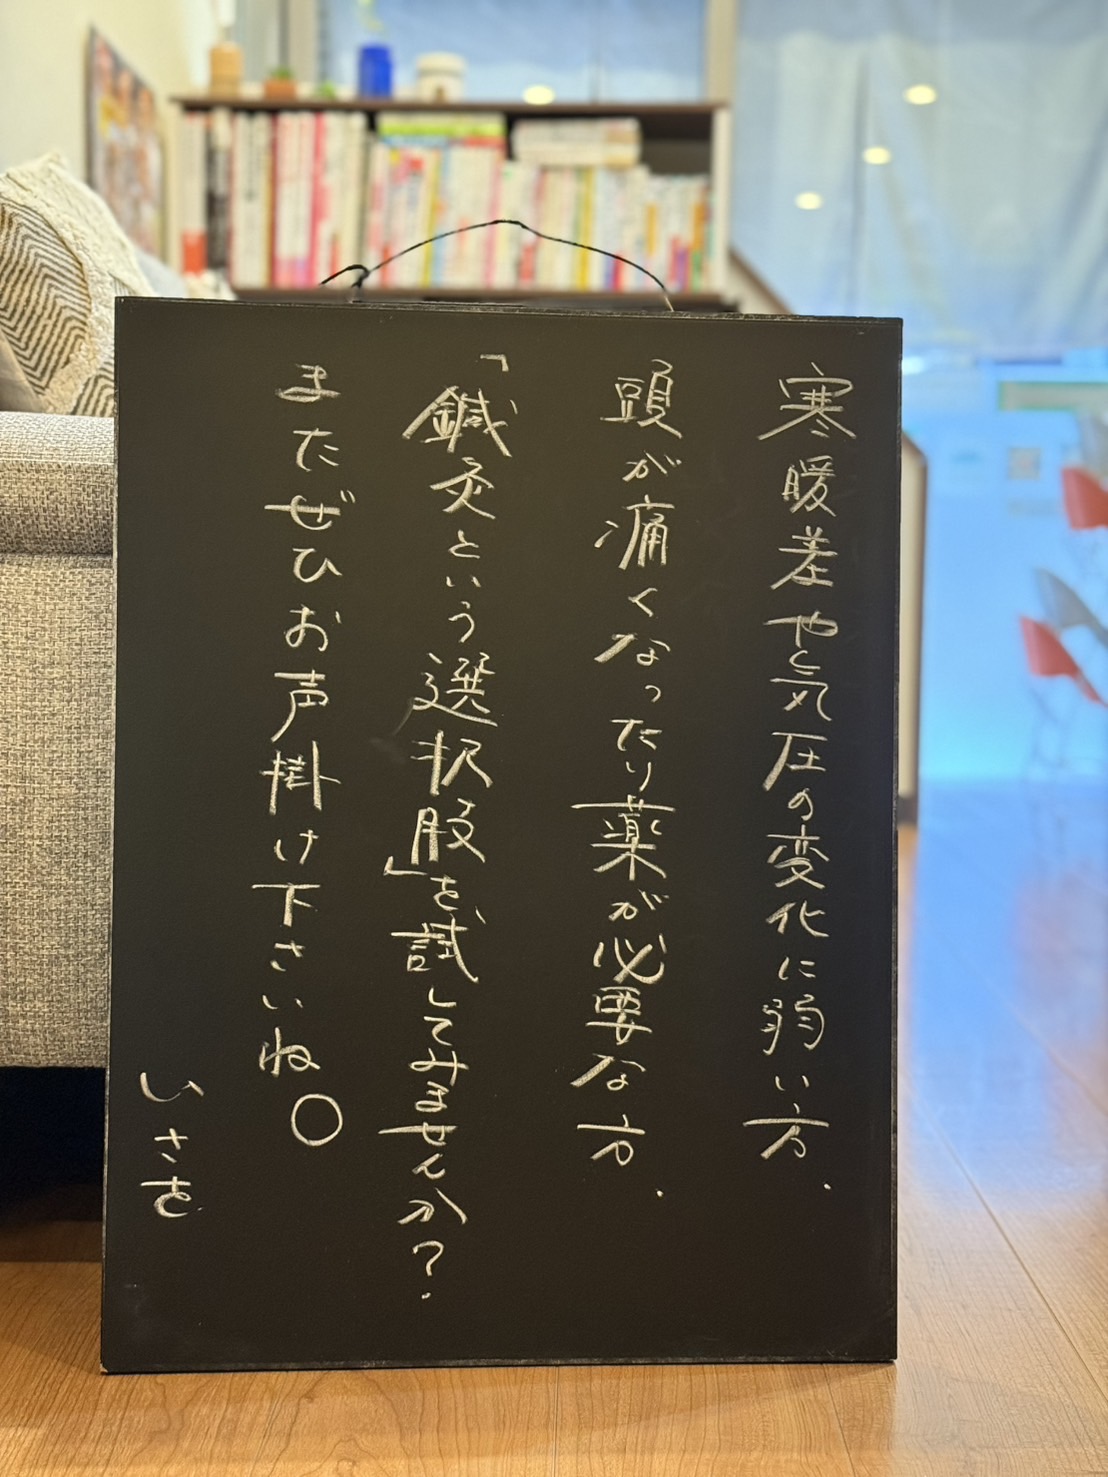 寒暖差や気圧の変化に弱い方.
頭が痛くなったり薬が必要な方.
「鍼灸という選択股」を試してみませんか?
またぜひお声掛け下さいね○
ひさを